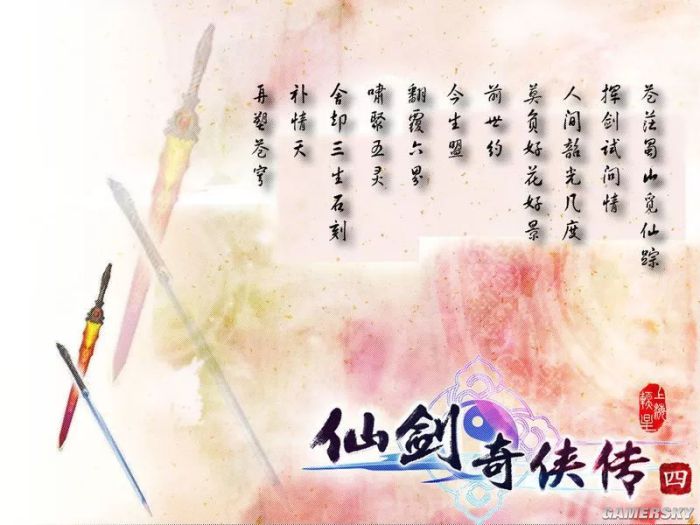 苍茫蜀山觅仙踪
挥剑试问情
人间韶光几度
莫负好花好景
前世约
今生盟
翻覆六界
啸聚五灵
舍却三生石刻
补情天
再塑苍穹
上海
软星
仙剑奇侠传
四
GAMERSKY